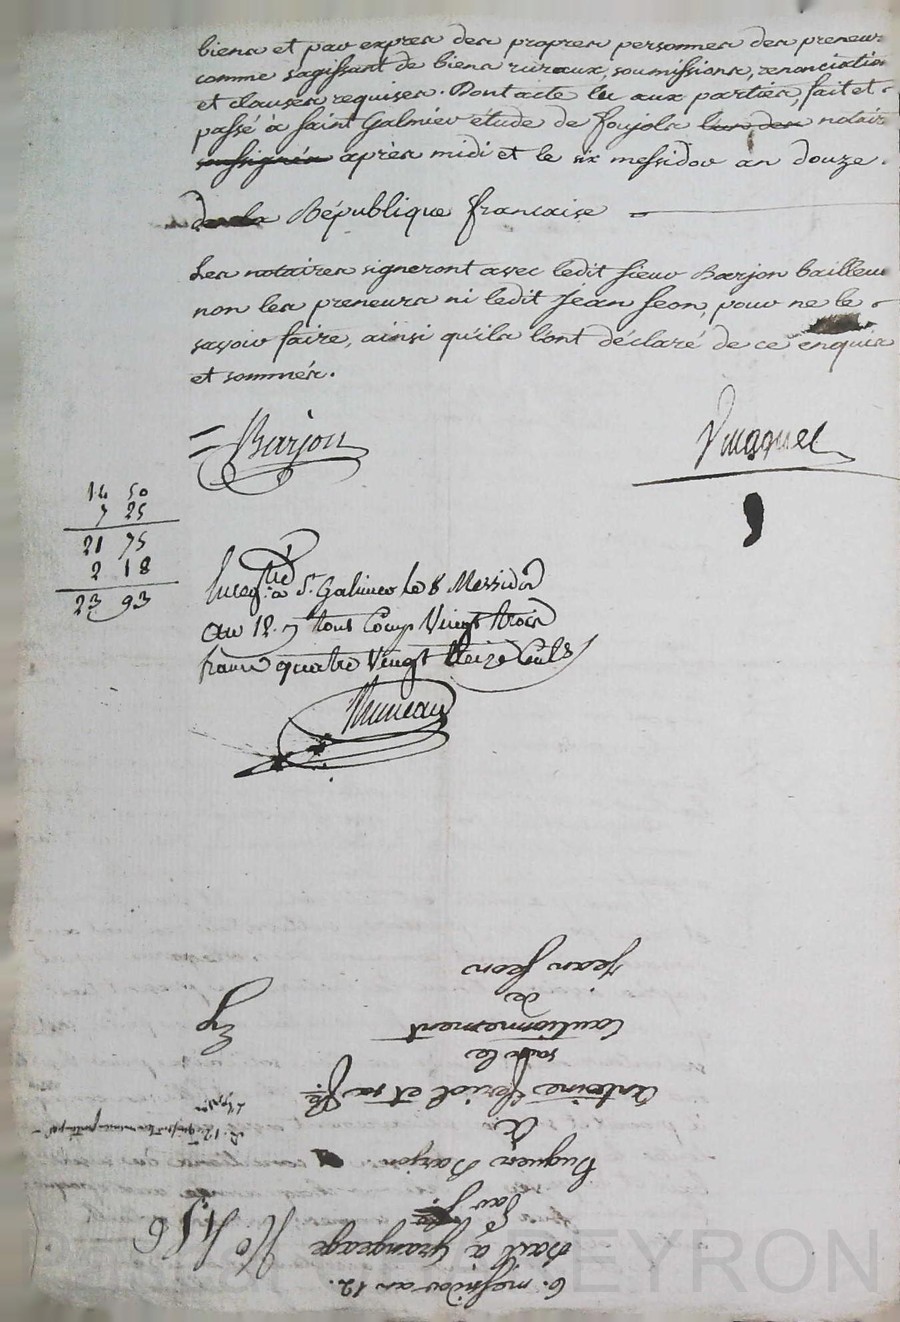 biens et par exprès des propres personnes des preneurs
comme sagissant de biens ruraux, soumissions, renonciation
et clauses requises. Dont acte lu aux parties, fait et
passé à saint Galmier étude de Foujols l'un des notaires
soussignés après midi et le six messidor an douze.
de la République francaise
Les notaires signeront avec ledit sieur Barjon bailleur
non les preneurs ni ledit jean feon, pour ne le
savoir faire, ainsi qu'ils l'ont déclaré de ce enquis
et sommés.
Barjon
14 50
7 25
21 75
2 18
23 93
Enregtré à St. Galmier le 8 Messidor
an 12. tout Comp Vingt trois
francs quatre Vingt treize Cents
6. messidor an 12.
Bail à Grangeage
par
hugues Barjon
à
antoine feriol et sa fe.
sous le
Cautionnement
de
jean feon
No 456